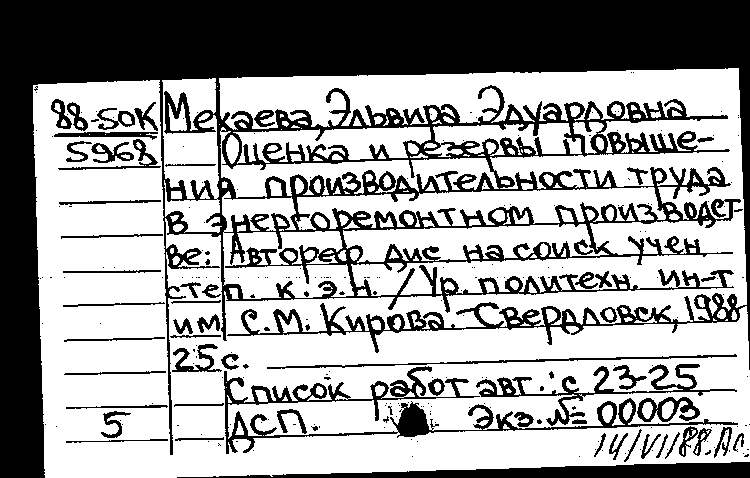 88-50К Мекаева, Эльвира Эдуардовна
5968 Оценка и резервы повыше-
ния производительности труда
в энергоремонтном производст-
ве: Автореф. дис. на соиск. учен.
степ. к.э.н. / Ур. политехн. ин-т
им. С.М. Кирова. - Свердловск, 1988
25 с.
Список работ авт.: с 23-25
5 ДСП. Экз. № 00003.
14/VII 88.